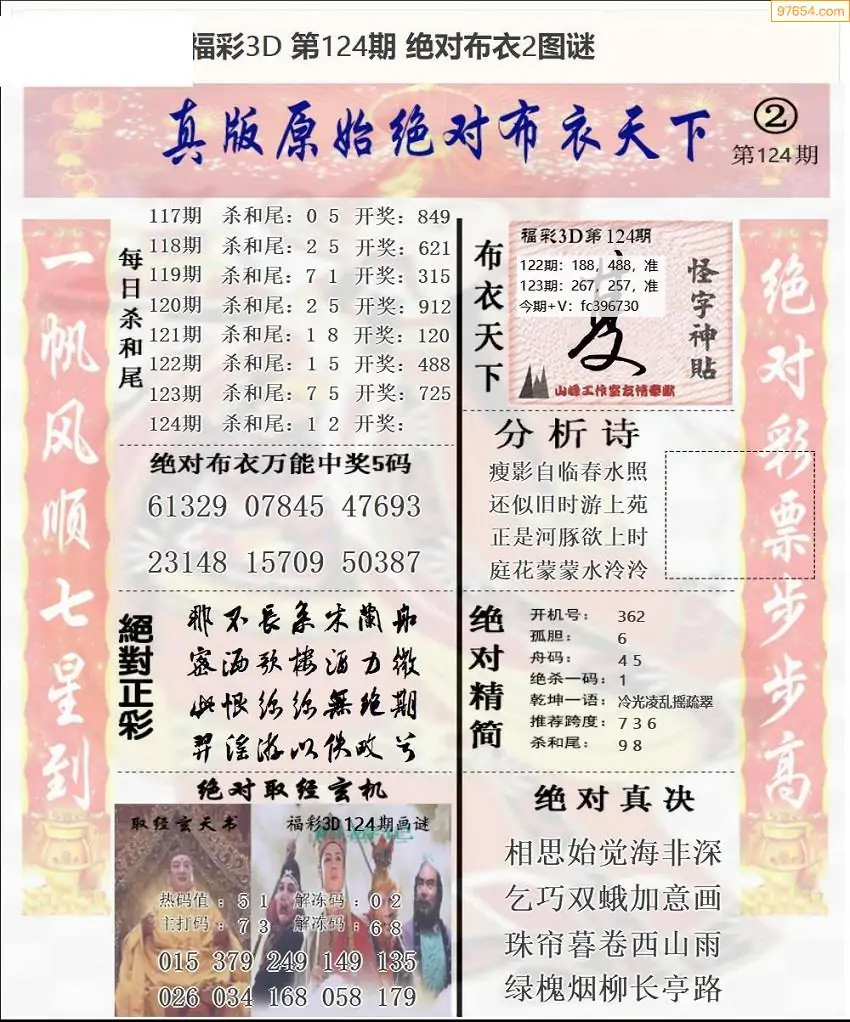 97654.com
福彩3D 第124期 绝对布衣2图谜
真版原始绝对布衣天下
②
第124期
一帆风顺七星到
每日杀和尾
117期 杀和尾：0 5 开奖：849
118期 杀和尾：2 5 开奖：621
119期 杀和尾：7 1 开奖：315
120期 杀和尾：2 5 开奖：912
121期 杀和尾：1 8 开奖：120
122期 杀和尾：1 5 开奖：488
123期 杀和尾：7 5 开奖：725
124期 杀和尾：1 2 开奖：
布衣天下
福彩3D第124期
122期：188，488，准
123期：267，257，准
今期+V：fc396730
怪字神貼
山峰工作室友情奉献
绝对彩票步步高
绝对布衣万能中奖5码
61329 07845 47693
23148 15709 50387
分析诗
瘦影自临春水照
还似旧时游上苑
正是河豚欲上时
庭花蒙蒙水泠泠
絕對正彩
那不長条米蘭舟
密酒歌楼酒力微
此恨綿綿無絕期
羿淫游以佚畋兮
绝对精简
开机号： 362
孤胆： 6
舟码： 4 5
绝杀一码：1
乾坤一语：冷光凌乱摇疏翠
推荐跨度：7 3 6
杀和尾： 9 8
绝对取经玄机
取经玄天书
福彩3D124期画谜
热码值：5 1 解冻码：0 2
主打码：7 3 解冻码：6 8
015 379 249 149 135
026 034 168 058 179
绝对真决
相思始觉海非深
乞巧双蛾加意画
珠帘暮卷西山雨
绿槐烟柳长亭路